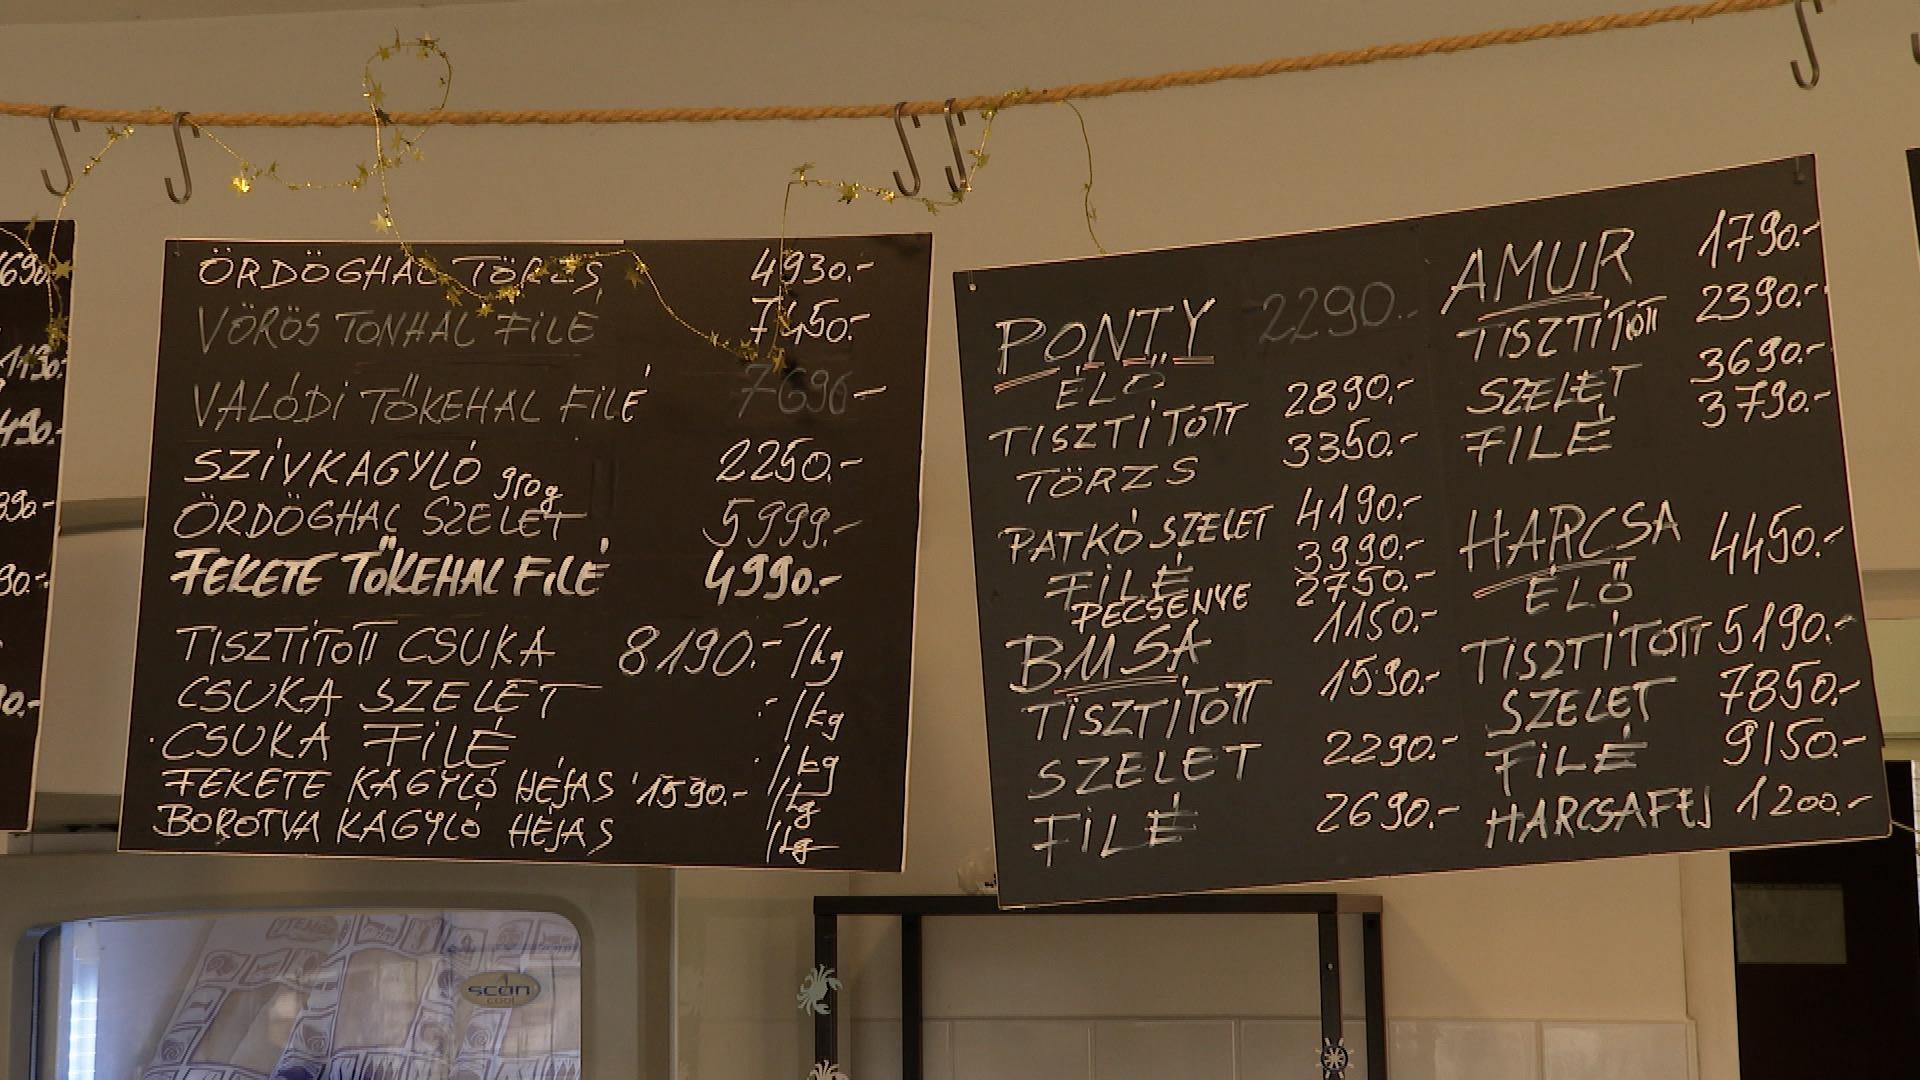 690.-
1190.-
490.-
390.-
90.-
90.-
ÖRDÖGHAL TÖRZS 4930.-
VÖRÖS TONHAL FILÉ 7450.-
VALÓDI TŐKEHAL FILÉ 7690.-
SZÍVKAGYLÓ 950g 2250.-
ÖRDÖGHAL SZELET 5999.-
FEKETE TŐKEHAL FILÉ 4990.-
TISZTÍTOTT CSUKA 8190.- /kg
CSUKA SZELET .- /kg
CSUKA FILÉ .- /kg
FEKETE KAGYLÓ HÉJAS 1590.- /kg
BOROTVA KAGYLÓ HÉJAS /kg
PONTY 2290.-
ÉLŐ
TISZTÍTOTT 2890.-
TÖRZS 3350.-
PATKÓ SZELET 4190.-
FILÉ 3990.-
PECSENYE 2750.-
BUSA 1150.-
TISZTÍTOTT 1590.-
SZELET 2290.-
FILÉ 2690.-
AMUR 1790.-
TISZTÍTOTT 2390.-
SZELET 3690.-
FILÉ 3790.-
HARCSA
ÉLŐ 4450.-
TISZTÍTOTT 5190.-
SZELET 7850.-
FILÉ 9150.-
HARCSAFEJ 1200.-
scan
cool